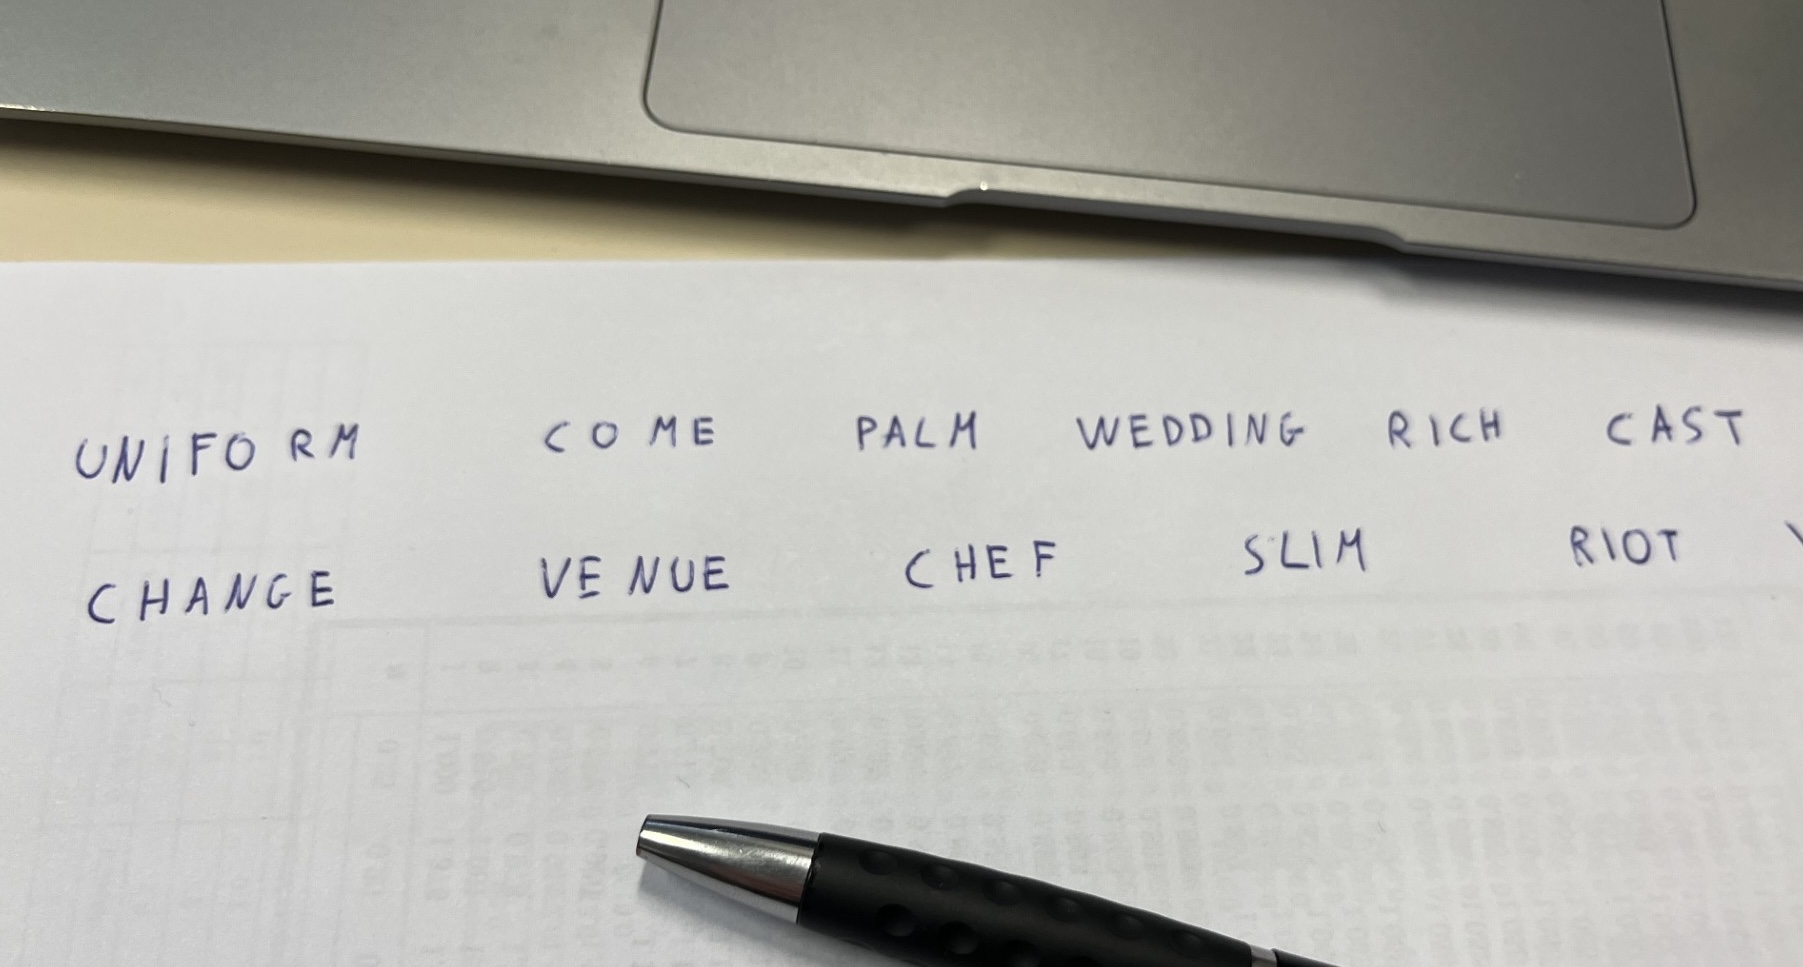 UNIFORM COME PALM WEDDING RICH CAST
CHANGE VENUE CHEF SLIM RIOT